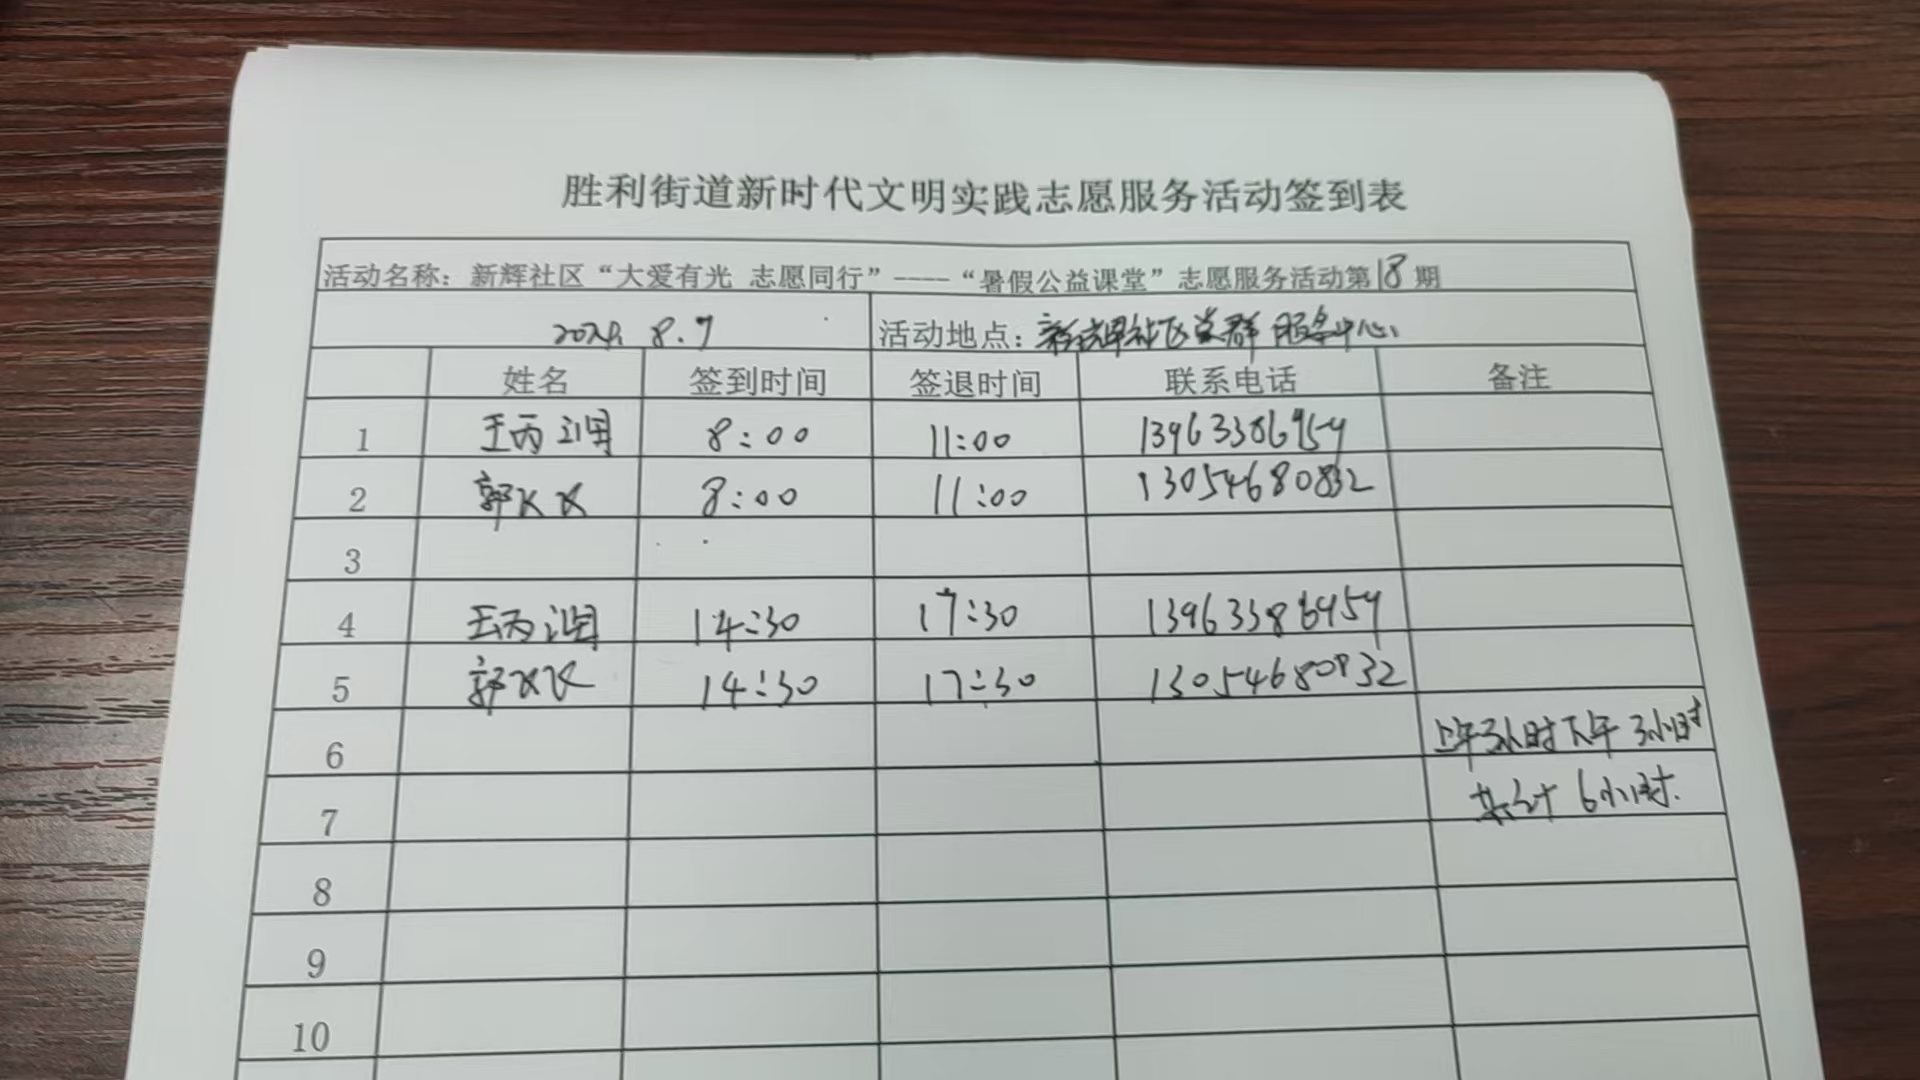 胜利街道新时代文明实践志愿服务活动签到表
活动名称：新辉社区“大爱有光 志愿同行”----“暑假公益课堂”志愿服务活动第18期
2024. 8.7 活动地点：新辉社区党群服务中心
姓名 签到时间 签退时间 联系电话 备注
1 王丙润 8:00 11:00
2 郭 8:00 11:00 13054680832
3
4 王丙润 14:30 17:30
5 郭 14:30 17:30 13054680832
6 上午3小时下午3小时
7 共计6小时.
8
9
10